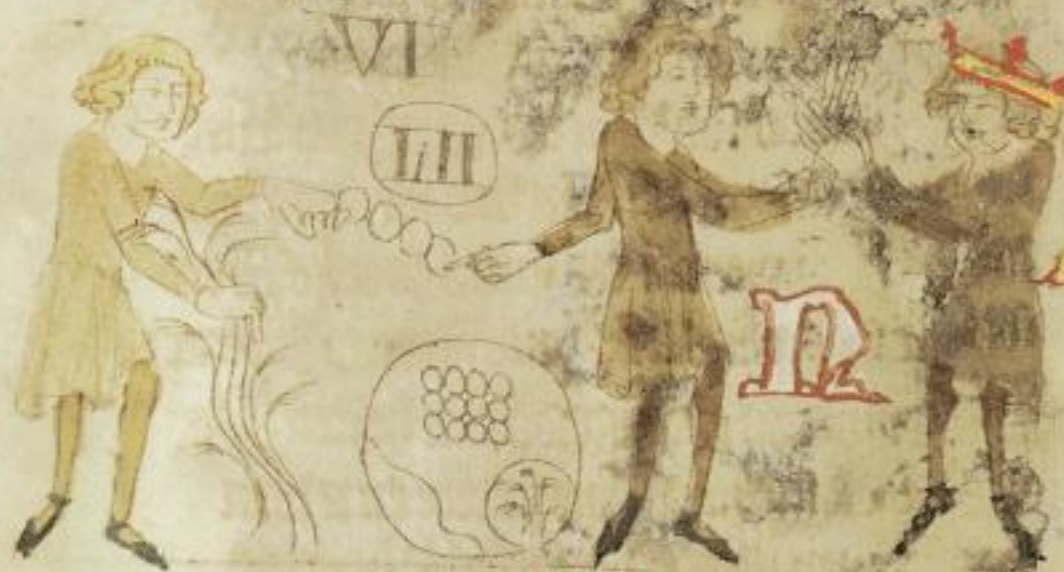 VI
LiII
N